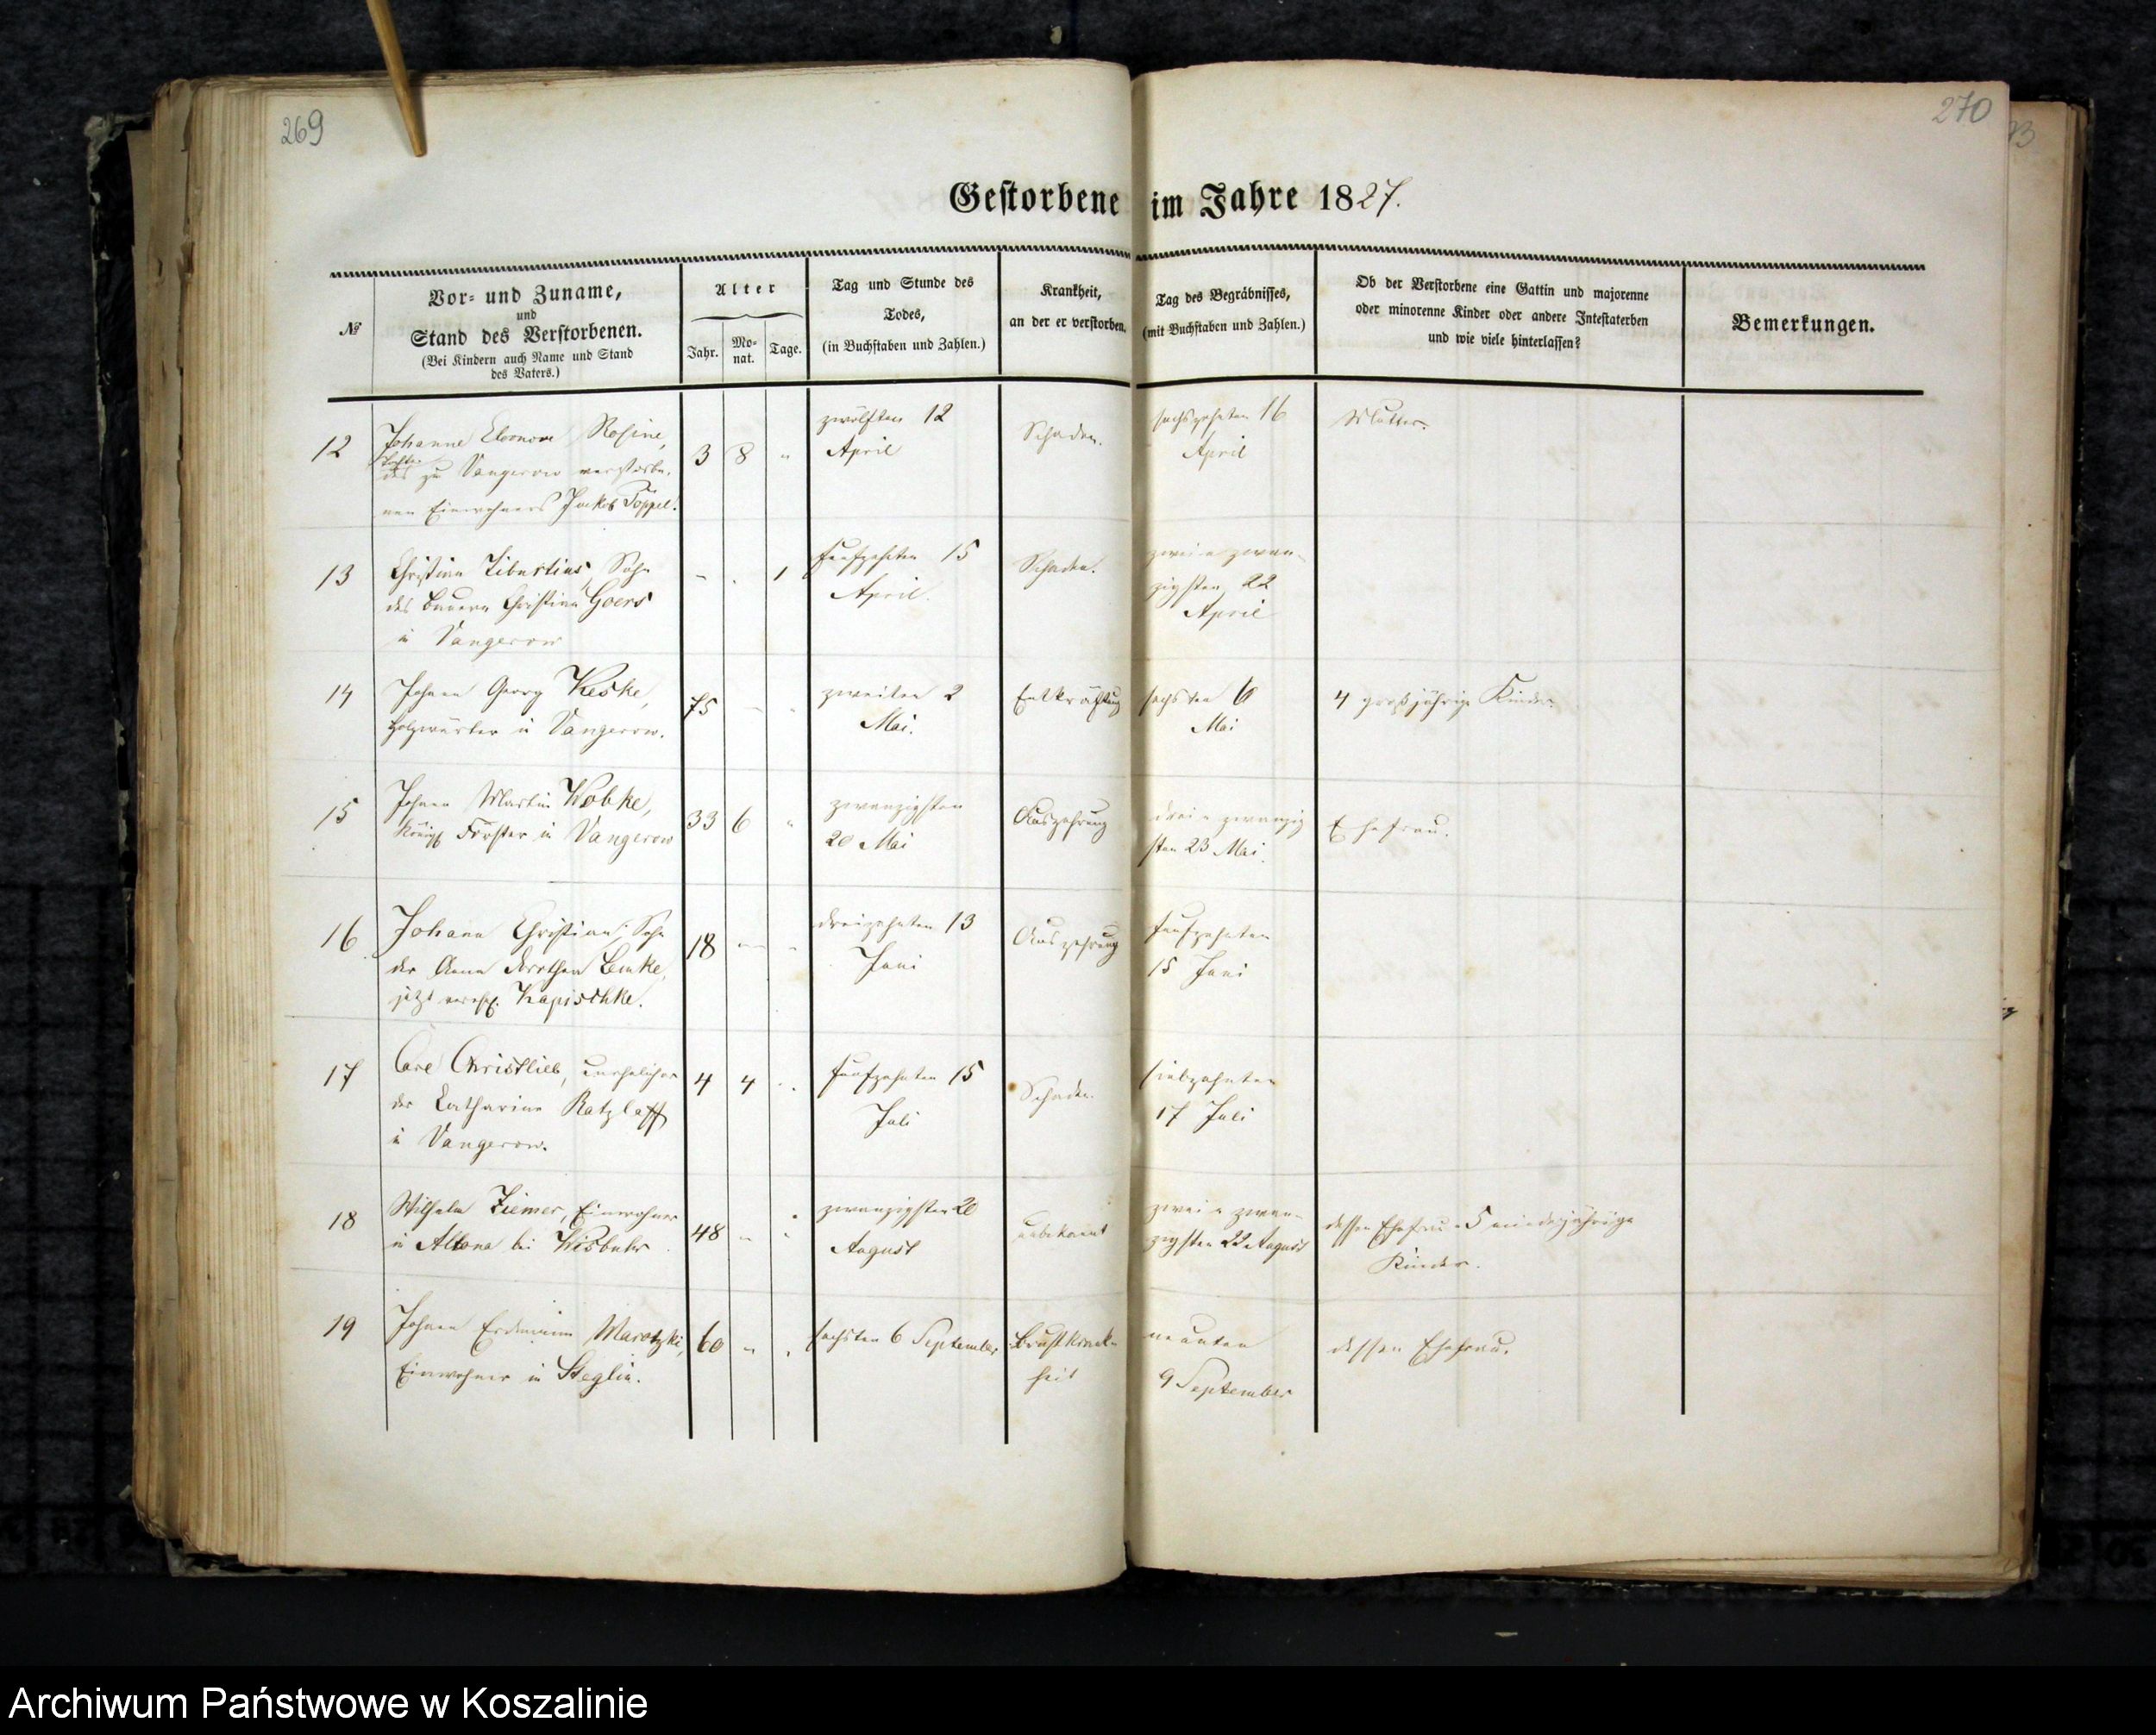 269
270
Gestorbene im Jahre 1827.
№
Vor- und Zuname,
und
Stand des Verstorbenen.
(Bei Kindern auch Name und Stand
des Vaters.)
Alter
Jahr.
Mo-
nat.
Tage.
Tag und Stunde des
Todes,
(in Buchstaben und Zahlen.)
Krankheit,
an der er verstorben.
Tag des Begräbnisses,
(mit Buchstaben und Zahlen.)
Ob der Verstorbene eine Gattin und majorenne
oder minorenne Kinder oder andere Intestaterben
und wie viele hinterlassen?
Bemerkungen.
12
Johanne Eleonore Rosine,
Tochter
des zu Vangerow verstorbe-
nen Einwohners Jakob Töppel.
3 8 "
zwölften 12
April
Schaden.
sechszehnten 16
April
Mutter.
13
Christian Tiburtius, Sohn
des Bauern Christian Goers
in Vangerow
- . 1
funfzehnten 15
April.
Schaden.
zwei u zwan-
zigsten 22
April
14
Johann Georg Keske,
Holzwärter in Vangerow.
75 - .
zweiten 2
Mai.
Entkräftung
sechsten 6
Mai
4 großjährige Kinder.
15
Johann Martin Wobke,
Königl Förster in Vangerow
33 6 "
zwanzigsten
20 Mai
Auszehrung
drei u zwanzig
sten 23 Mai.
Ehefrau.
16
Johann Christian, Sohn
der Anna Dorothea Lemke,
jetzt verehl. Kapischke.
18 - -
dreizehnten 13
Juni
Auszehrung
funfzehnten
15 Juni
17
Carl Christlieb, unehelicher
der Catharine Ratzlaff
in Vangerow.
4 4 ..
funfzehnten 15
Juli
Schaden.
siebzehnten
17 Juli
18
Wilhelm Ziemer, Einwohner
in Altona bei Wisbuhr
48 " "
zwanzigsten 20
August
unbekannt
zwei u zwan-
zigsten 22 August
dessen Ehefrau u 5 minderjährige
Kinder.
19
Johann Erdmann Marotzki,
Einwohner in Steglin.
60 " .
sechsten 6 September
Brustkrank-
heit
neunten
9 September
dessen Ehefrau.
Archiwum Państwowe w Koszalinie